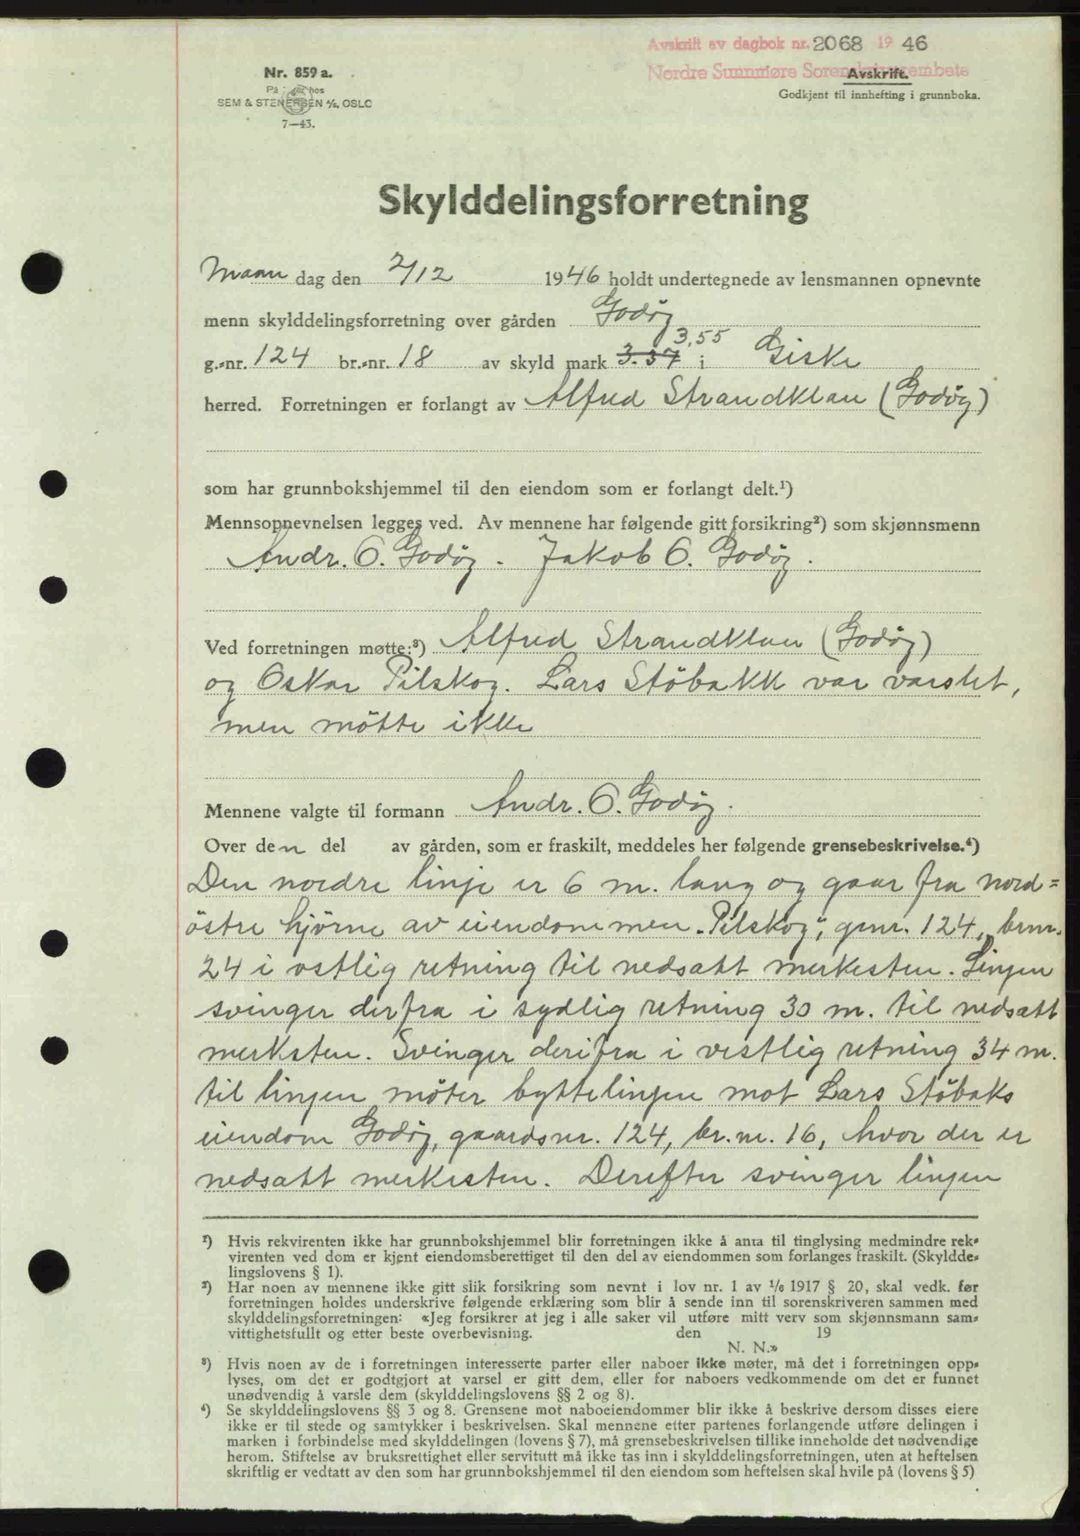 Avskrift av dagbok nr. 2068 19 46
Nordre Sunnmøre Sorenskriverembete
Nr. 859 a.
På lager hos
SEM & STENERSEN A/S, OSLO
7—43.
Avskrift.
Godkjent til innhefting i grunnboka.
Skylddelingsforretning
Maan dag den 2/12 1946 holdt undertegnede av lensmannen opnevnte
menn skylddelingsforretning over gården Godøy
g.-nr. 124 br.-nr. 18 av skyld mark 3.37 3,55 i Giske
herred. Forretningen er forlangt av Alfred Strandklau (Godøy)
som har grunnbokshjemmel til den eiendom som er forlangt delt.¹)
Mennsopnevnelsen legges ved. Av mennene har følgende gitt forsikring²) som skjønnsmenn
Andr. O. Godøy. Jakob O. Godøy.
Ved forretningen møtte:³) Alfred Strandklau (Godøy)
og Oskar Pilskog. Lars Stöbakk var varslet,
men mötte ikke
Mennene valgte til formann Andr. O. Godøy.
Over den del av gården, som er fraskilt, meddeles her følgende grensebeskrivelse.⁴)
Den nordre linje er 6 m. lang og gaar fra nord=
östre hjörne av eiendommen „Pilskog", gnr. 124, brnr.
24 i vestlig retning til nedsatt merkesten. Linjen
svinger derfra i sydlig retning 30 m. til nedsatt
merksten. Svinger derifra i vestlig retning 34 m.
til linjen möter byttelinjen mot Lars Stöbaks
eiendom Godøy, gaardsnr. 124, br.nr. 16, hvor der er
nedsatt merkesten. Derefter svinger linjen
¹) Hvis rekvirenten ikke har grunnbokshjemmel blir forretningen ikke å anta til tinglysing medmindre rek-
virenten ved dom er kjent eiendomsberettiget til den del av eiendommen som forlanges fraskilt. (Skyldde-
lingslovens § 1).
²) Har noen av mennene ikke gitt slik forsikring som nevnt i lov nr. 1 av 1/6 1917 § 20, skal vedk. før
forretningen holdes underskrive følgende erklæring som blir å sende inn til sorenskriveren sammen med
skylddelingsforretningen: «Jeg forsikrer at jeg i alle saker vil utføre mitt verv som skjønnsmann sam-
vittighetsfullt og etter beste overbevisning. den 19
N. N.»
³) Hvis noen av de i forretningen interesserte parter eller naboer ikke møter, må det i forretningen opp-
lyses, om det er godtgjort at varsel er gitt dem, eller for naboers vedkommende om det er funnet
unødvendig å varsle dem (skylddelingslovens §§ 2 og 8).
⁴) Se skylddelingslovens §§ 3 og 8. Grensene mot naboeiendommer blir ikke å beskrive dersom disses eiere
ikke er til stede og samtykker i beskrivelsen. Skal mennene etter partenes forlangende utføre delingen i
marken i forbindelse med skylddelingen (lovens § 7), må grensebeskrivelsen tillike inneholde det nødvendige
herom. Stiftelse av bruksrettighet eller servitutt må ikke tas inn i skylddelingsforretningen, uten at heftelsen
skriftlig er vedtatt av den som har grunnbokshjemmel til den eiendom som heftelsen skal hvile på (lovens § 5)